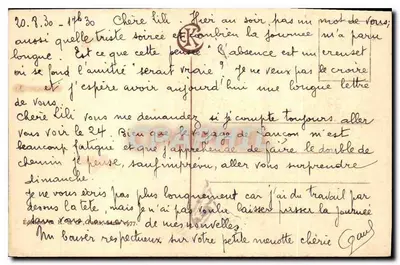 20.8.30 - 17h30 Chère Lili. Hier au soir, pas un mot de vous,
aussi quelle triste soirée et combien la journée m'a paru
longue. Est ce que cette pensée "L'absence est un creuset
où se fond l'amitié" serait vraie? Je ne veux pas le croire
et j'espère avoir aujourd'hui une longue lettre
de vous.
Chère Lili vous me demandez si je compte toujours aller
vous voir le 24. Bien que le de m'est
beaucoup fatigué et que j'appréhende de faire le double de
chemin je pense, sauf imprévu, aller vous surprendre
dimanche.
Je ne vous écris pas plus longuement car j'ai du travail par
dessus la tête, mais je n'ai pas voulu laisser passer la journée
sans vous donner de mes nouvelles.
Un baiser respectueux sur votre petite menotte chérie